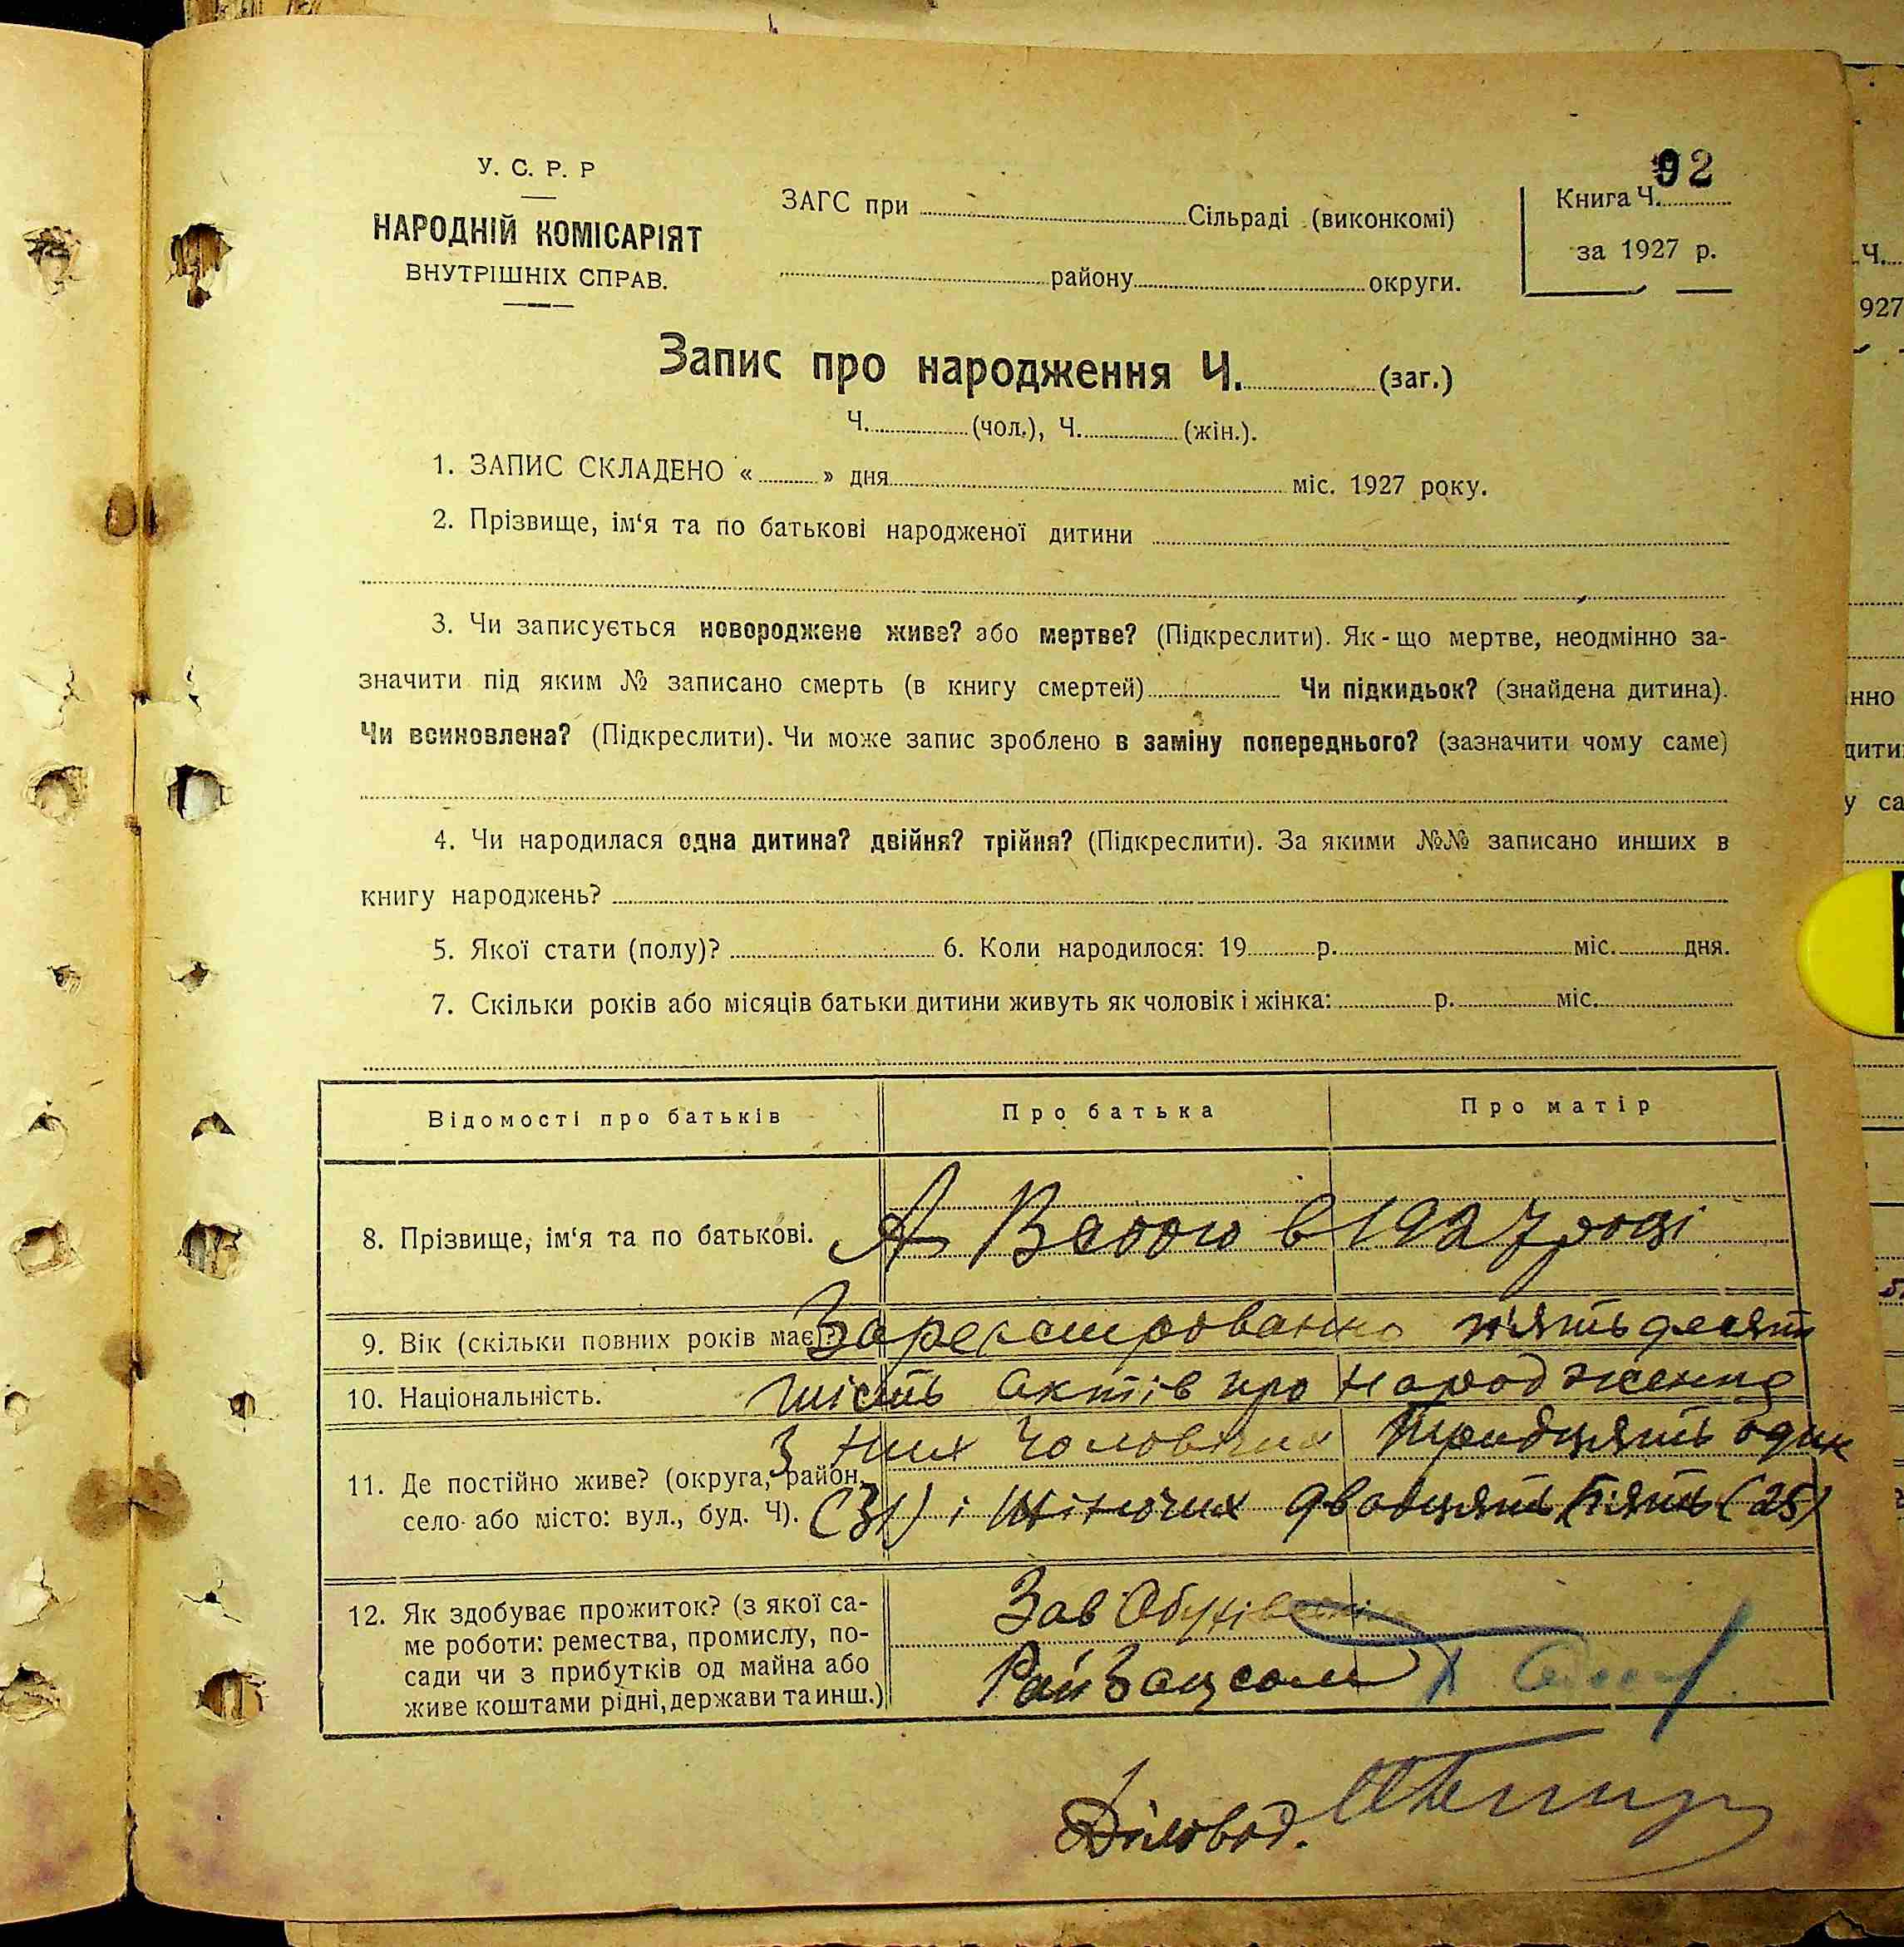 92
У. С. Р. Р
НАРОДНІЙ КОМІСАРІЯТ
ВНУТРІШНІХ СПРАВ.
ЗАГС при Сільраді (виконкомі)
району округи.
Книга Ч.
за 1927 р.
Запис про народження Ч. (заг.)
Ч. (чол.), Ч. (жін.).
1. ЗАПИС СКЛАДЕНО « » дня міс. 1927 року.
2. Прізвище, ім‘я та по батькові народженої дитини
3. Чи записується новороджене живе? або мертве? (Підкреслити). Як-що мертве, неодмінно за-
значити під яким № записано смерть (в книгу смертей) Чи підкидьок? (знайдена дитина).
Чи всиновлена? (Підкреслити). Чи може запис зроблено в заміну попереднього? (зазначити чому саме)
4. Чи народилася одна дитина? двійня? трійня? (Підкреслити). За якими №№ записано инших в
книгу народжень?
5. Якої стати (полу)? 6. Коли народилося: 19 р. міс. дня.
7. Скільки років або місяців батьки дитини живуть як чоловік і жінка: р. міс.
Відомості про батьків Про батька Про матір
8. Прізвище, ім‘я та по батькові.
А Всього в 1927 році
9. Вік (скільки повних років має)?
Зарегестровано п'ятьдесят
10. Національність.
шість актів про народження
з них чоловічих тридцять один
11. Де постійно живе? (округа, район,
село або місто: вул., буд. Ч).
(31) і жіночих двадцять п'ять (25)
12. Як здобуває прожиток? (з якої са-
ме роботи: ремества, промислу, по-
сади чи з прибутків од майна або
живе коштами рідні, держави та инш.)
Зав Обухівським
РайЗагсом
Діловод.
Ч.
927
нно
у са